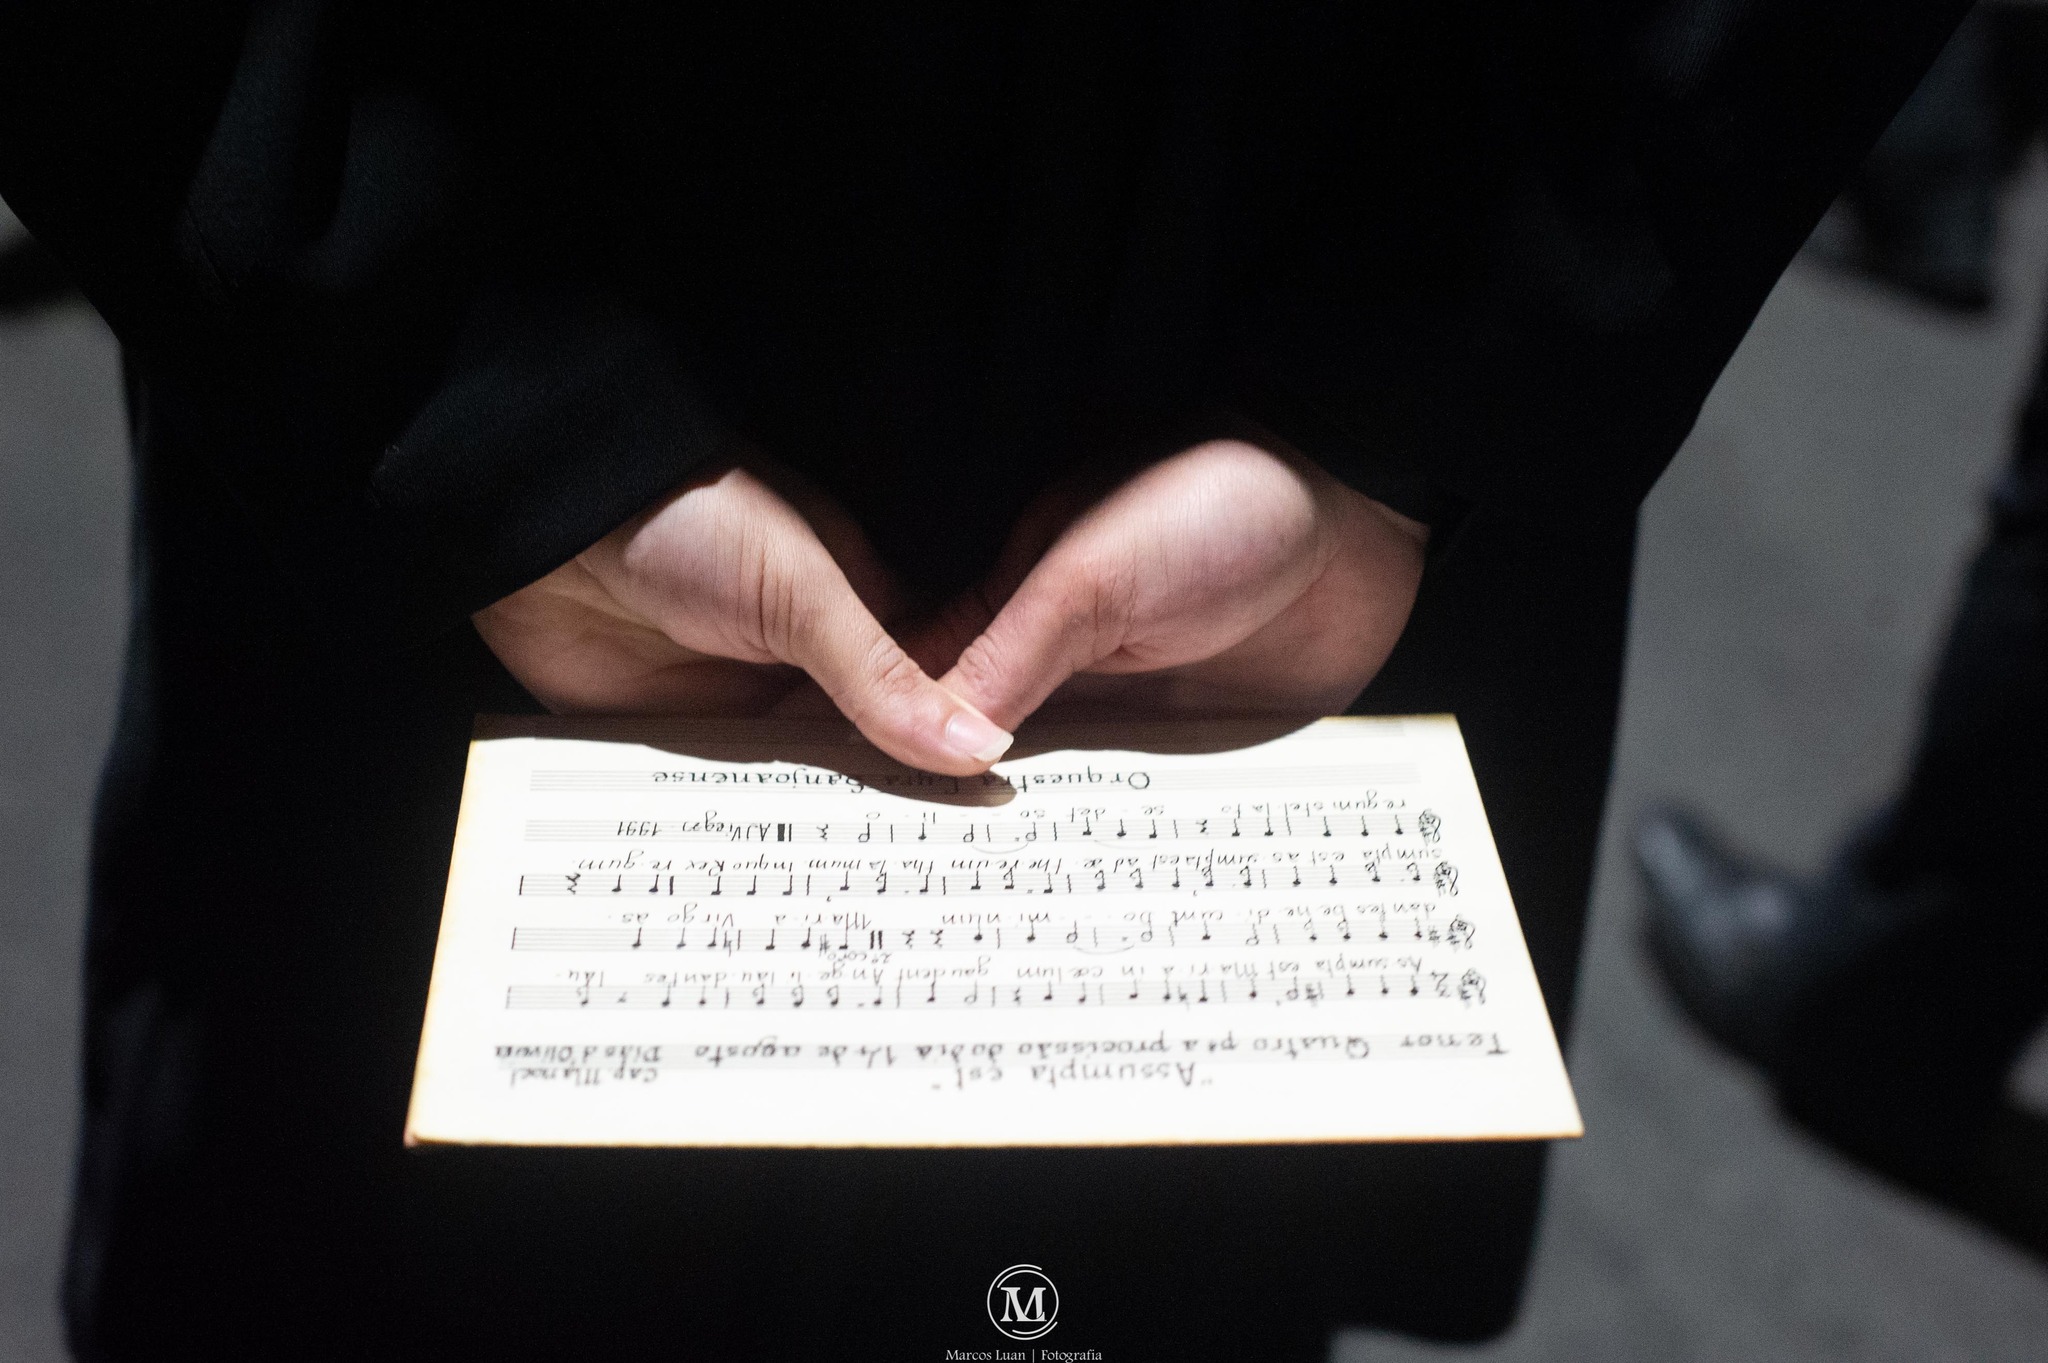 "Assumpta est"
Cap. Manoel
Tenor Quatro pra procissão do dia 14 de agosto Dias d'Oliveira
As sumpta est Mari-a in cœlum gaudent An ge-li lau dantes lau-
2º coro
dantes be ne di-cunt Do - mi-num Mari-a Virgo as-
sumpta est as-sumpta est ad æ-thereum tha la mum In quo Rex re-gum
regum stel-la to se-det so - li - o
AJViegas-1991
Orquestra Lyra Sanjoanense
ML
Marcos Luan | Fotografia